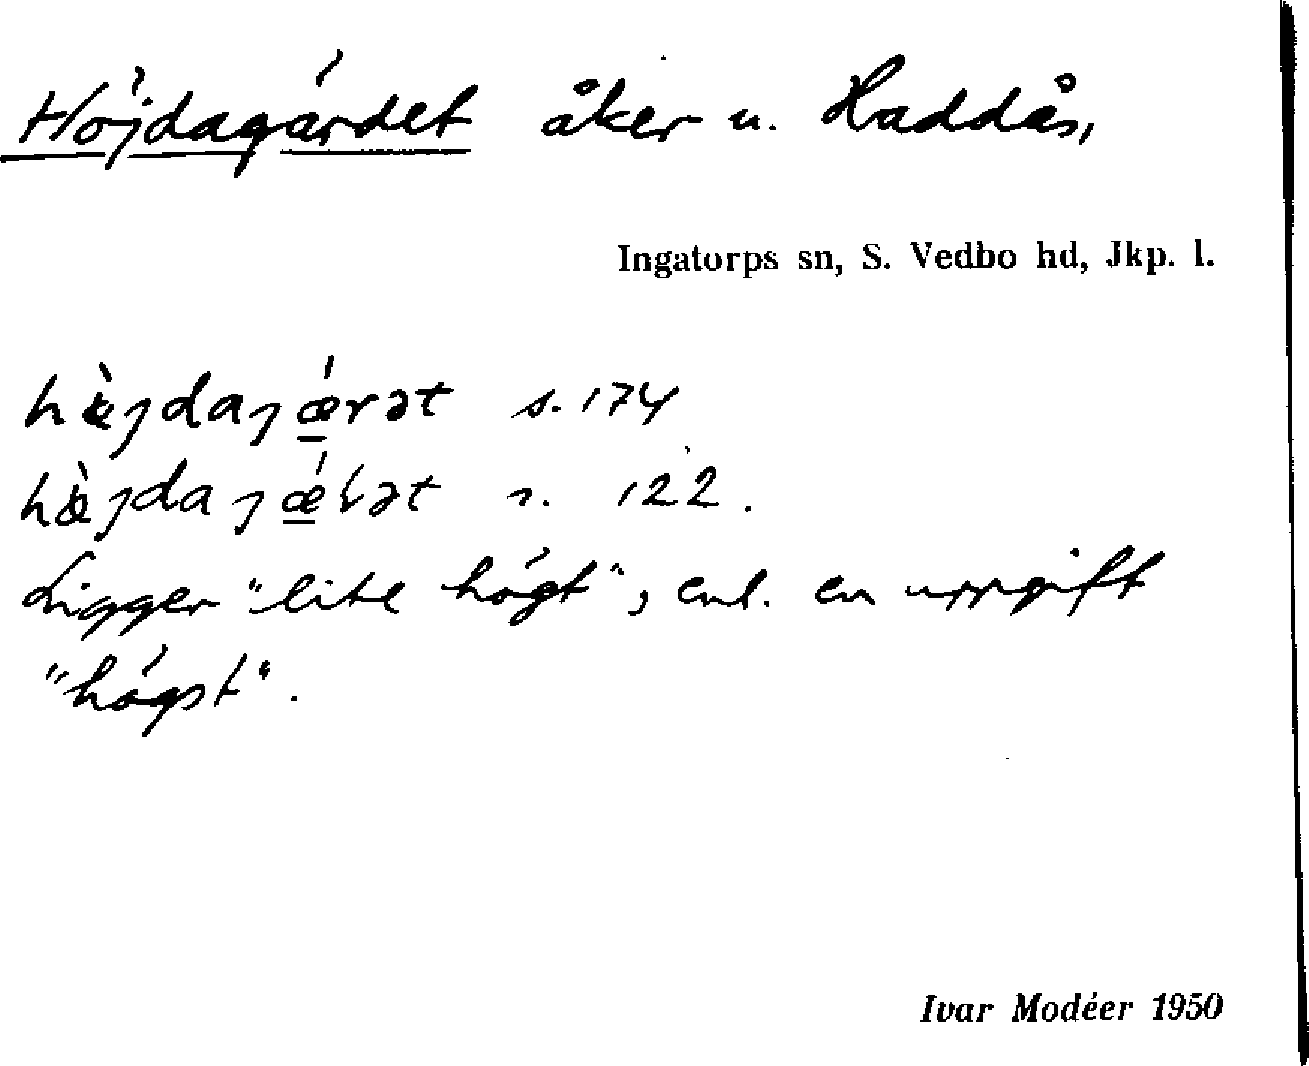 Höjdagärdet åker u. Haddås,
Ingatorps sn, S. Vedbo hd, Jkp. l.
hæ̀jdajǽrət s. 174
hæ̀jdajǽɽət s. 122.
Ligger "lite högt", enl. en uppgift
"högst".
Ivar Modéer 1950